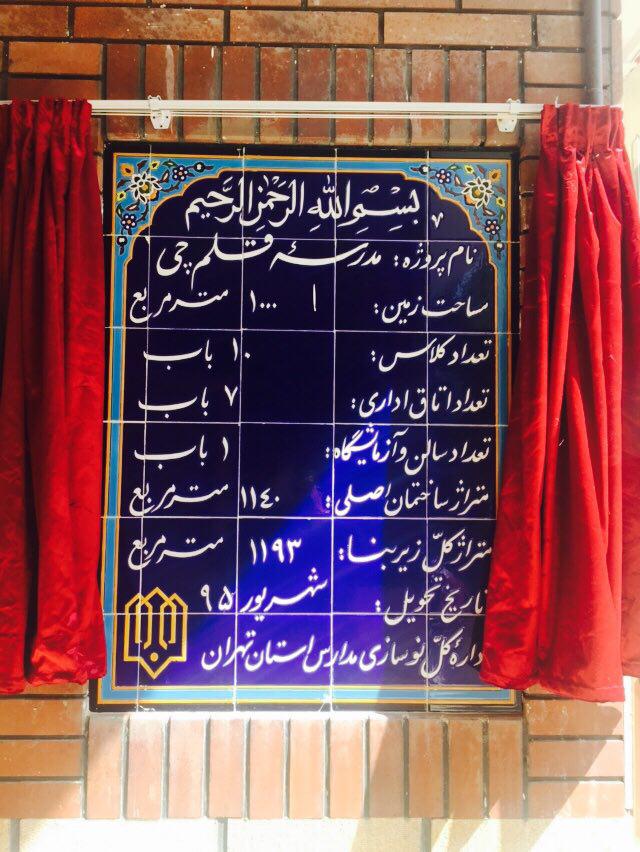 بسم الله الرحمن الرحیم
نام پروژه: مدرسهٔ قلم چی
مساحت زمین: ۱۰۰۰ مترمربع
تعداد کلاس: ۱۰ باب
تعداد اتاق اداری: ۷ باب
تعداد سالن و آزمایشگاه: ۱ باب
متراژ ساختمان اصلی: ۱۱۴۰ مترمربع
متراژ کلّ زیربنا: ۱۱۹۳ مترمربع
تاریخ تحویل: شهریور ۹۵
اداره کلّ نوسازی مدارس استان تهران